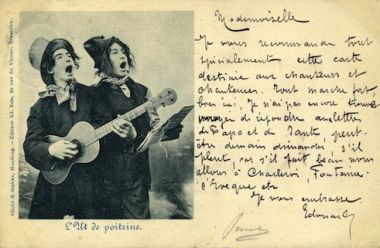 Mademoiselle
Je vous recommande tout
spécialement cette carte
destinée aux chanteurs et
chanteuses. Tout marche fort
bien ici. Je n'ai pas encore trouvé
moyen de répondre aux lettres
de Papa et de Tante, peut-
être demain dimanche, s'il
pleut, car s'il fait beau nous
allons à Charleroi, Fontaine-
l'Evêque etc
Je vous embrasse
Edouard
L'Ut de poitrine.
Cliché E. - Éditeur Ed. Nels, rue de Bruxelles.